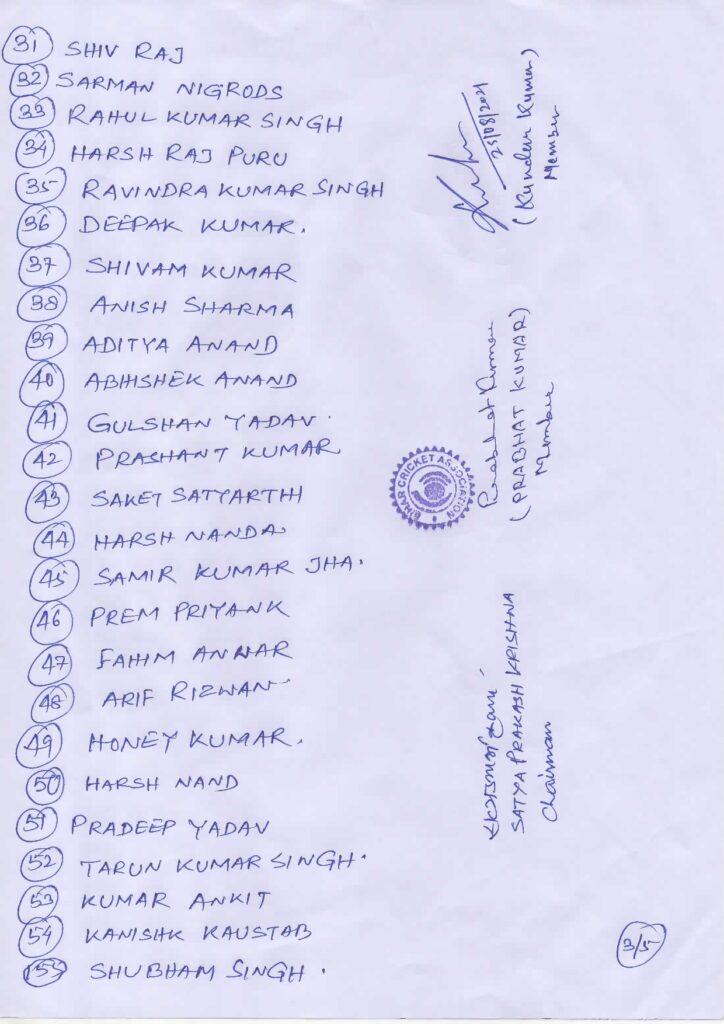 31 SHIV RAJ
32 SARMAN NIGRODS
33 RAHUL KUMAR SINGH
34 HARSH RAJ PURU
35 RAVINDRA KUMAR SINGH
36 DEEPAK KUMAR.
37 SHIVAM KUMAR
38 ANISH SHARMA
39 ADITYA ANAND
40 ABHISHEK ANAND
41 GULSHAN YADAV.
42 PRASHANT KUMAR
43 SAKET SATYARTHI
44 HARSH NANDA.
45 SAMIR KUMAR JHA.
46 PREM PRIYANK
47 FAHIM ANWAR
48 ARIF RIZWAN
49 HONEY KUMAR.
50 HARSH NAND
51 PRADEEP YADAV
52 TARUN KUMAR SINGH.
53 KUMAR ANKIT
54 KANISHK KAUSTAB
55 SHUBHAM SINGH.
25/08/2021
(Kundan Kumar)
Member
Prabhat Kumar
(PRABHAT KUMAR)
Member
BIHAR CRICKET ASSOCIATION
SATYA PRAKASH KRISHNA
Chairman
3/5